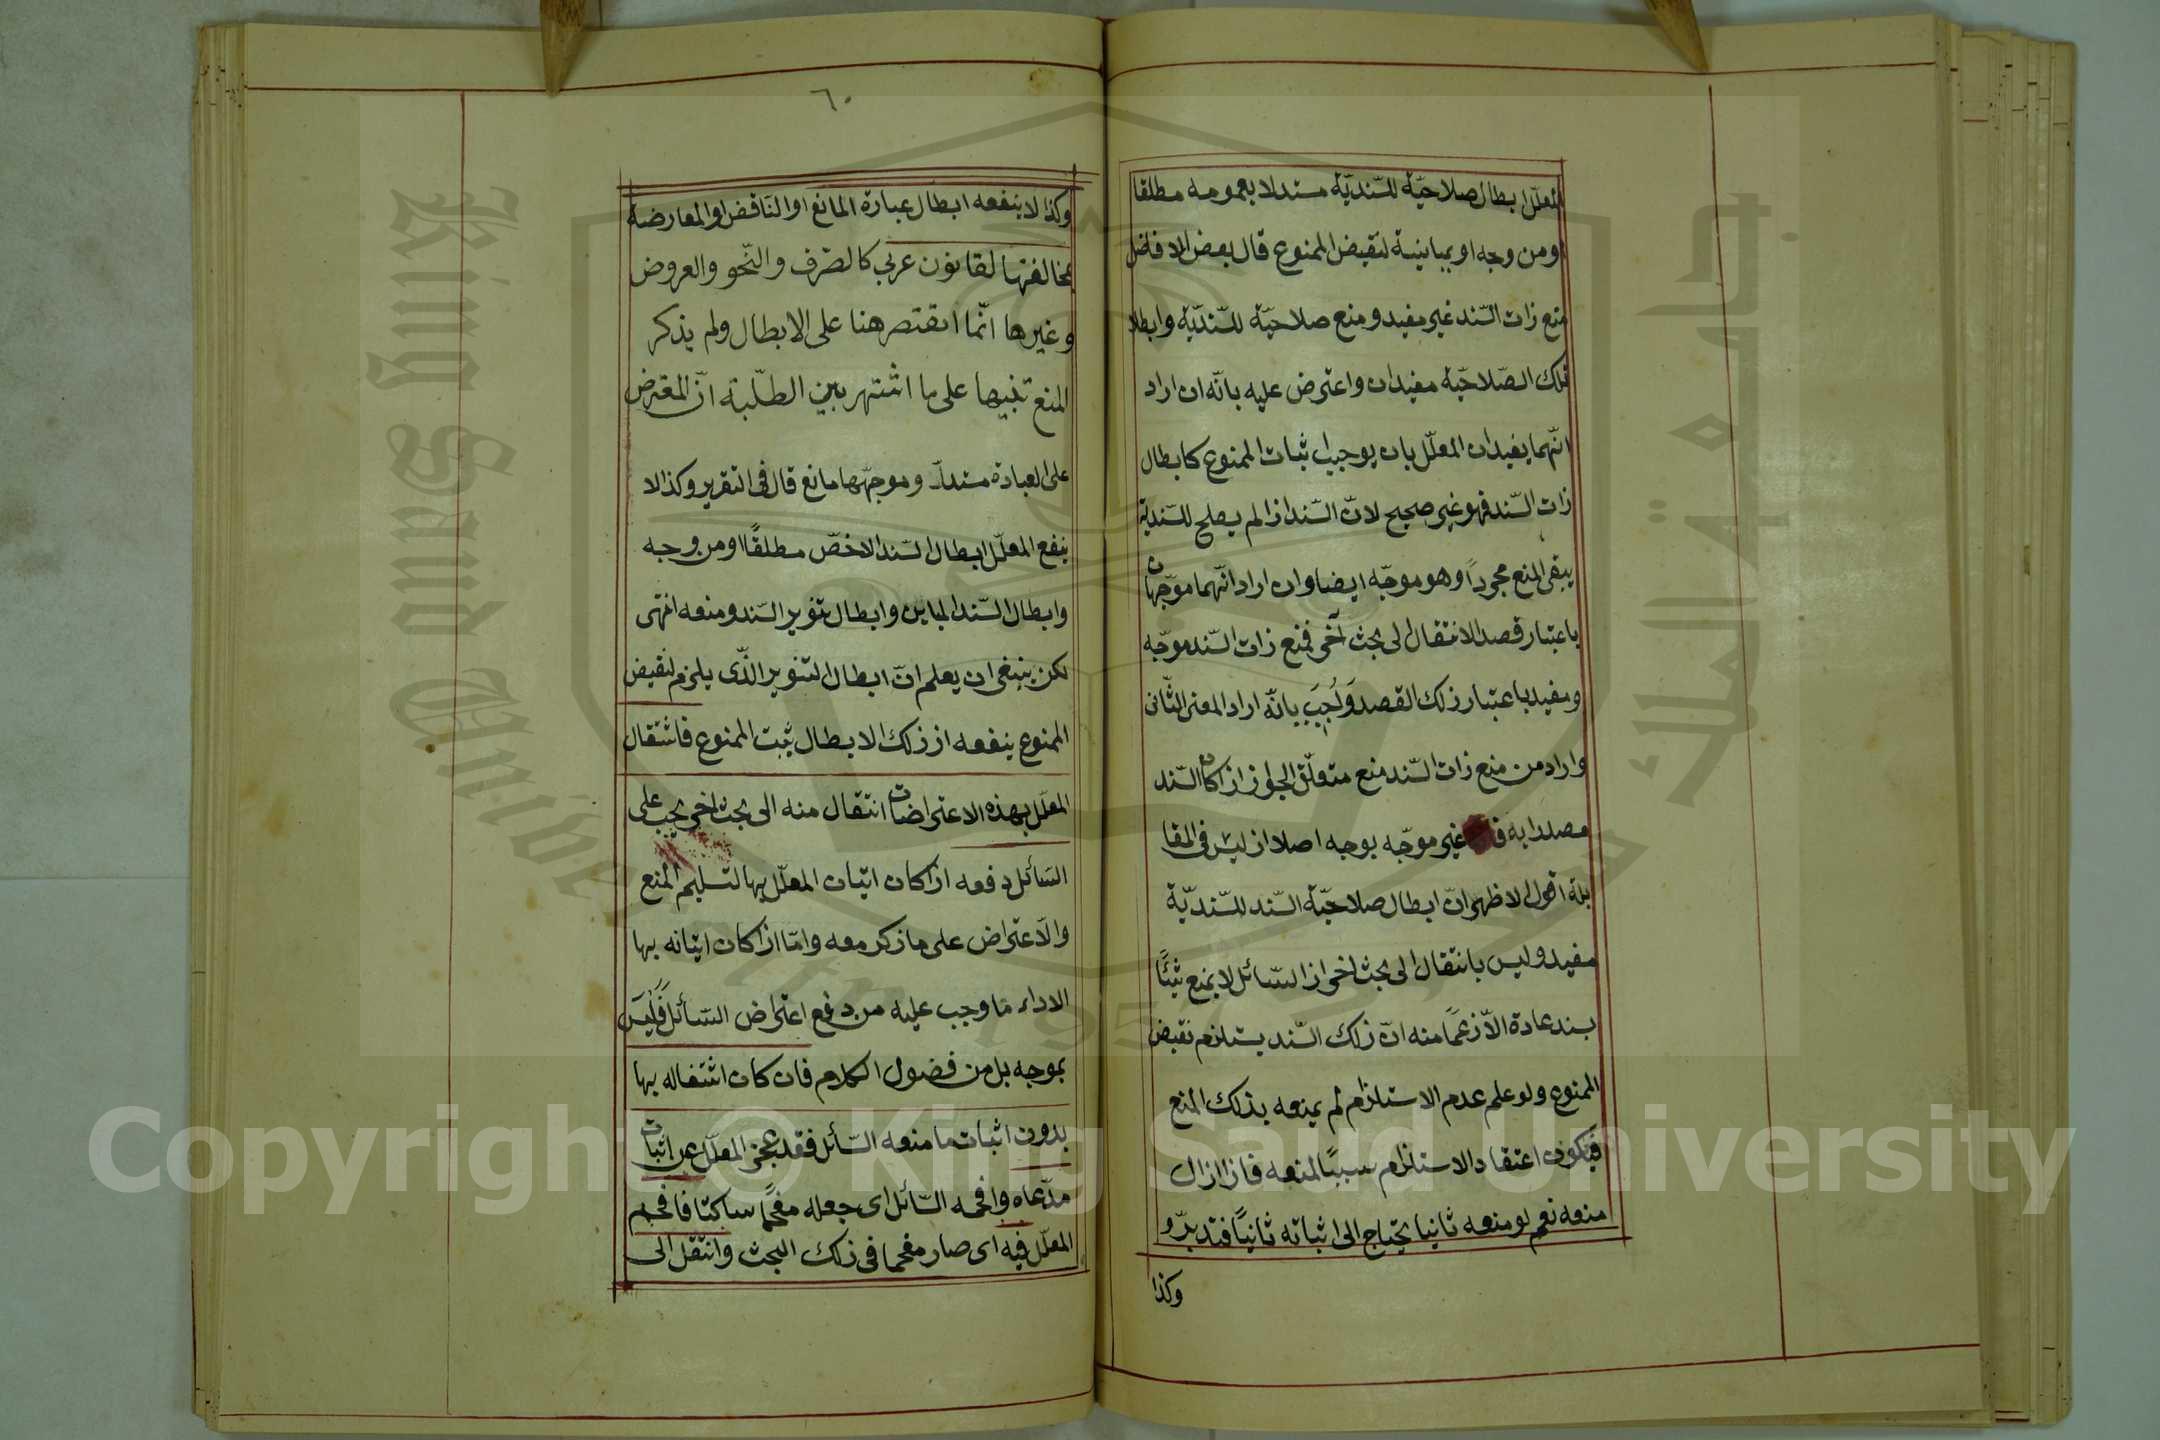 المعلّل ابطال صلاحيّة للسّنديّة مستدلا بعمومه مطلقا
او من وجه او بمباينية لنقيض الممنوع قال بعض الافاضل
منع ذات السّند غير مفيد ومنع صلاحيّة للسّنديّة وابطال
تلك الصّلاحيّة مفيدان واعترض عليه بانّه ان اراد
انّهما يفيدان المعلّل بان يوجبا اثبات الممنوع كابطال
ذات السّند فهو غير صحيح لانّ السّند اذا لم يصلح للسّندية
يبقى المنع مجرداً وهو موجّه ايضا وان اراد انّهما موجّهان
باعتبار قصد الانتقال الى بحث آخر فمنع ذات السّند موجّه
ومفيد باعتبار ذلك القصد وَاُجِيبَ بانّه اراد المعنى الثّانى
واراد من منع ذات السّند منع متعلّق الجواز اذا كان السّند
مصدرا به فانه غير موجّه بوجه اصلا اذ ليس فى المقا
بلة اقول الاظهر انّ ابطال صلاحيّة السّند للسّنديّة
مفيد وليس بانتقال الى بحث اخر اذ السّائل لا يمنع شيئًا
بسند عادة الّا زعمًا منه انّ ذلك السّند يستلزم نقيض
الممنوع ولو علم عدم الاستلزام لم يمنعه بذلك المنع
فيكون اعتقاد الاستلزام سببًا لمنعه فاذا زال
منعه نعم لو منعه ثانيا يحتاج الى اثباته ثانيًا فتدبّر و
وكذا
٦٠
وكذا لا ينفعه ابطال عبارة المانع او النّاقض او المعارضة
بمخالفتها لقانون عربي كالصّرف والنّحو والعروض
وغيرها انّما اقتصر هنا على الابطال ولم يذكر
المنع تنبيها على ما اشتهر بين الطّلبة انّ المعترض
على العبادة مستدلّ وموجّهها مانع قال فى التقرير وكذا لا
ينفع المعلّل ابطال السّند الاخصّ مطلقًا او من وجه
وابطال السّند المباين وابطال تنوير السّند ومنعه انتهى
لكن ينبغى ان يعلم انّ ابطال التنوير الذّى يلزم لنقيض
الممنوع ينفعه اذ ذلك الابطال يثبت الممنوع فاشتغال
المعلّل بهذه الاعتراضات انتقال منه الى بحث اخر يجب على
السّائل دفعه اذا كان اتيان المعلّل بها لتسليم المنع
والاعتراض على ما ذكر معه وامّا اذا كان اتيانه بها
الاداء ما وجب عليه من دفع اعتراض السّائل فَلَيسَ
بموجه بل من فضول الكلام فان كان اشتغاله بها
بدون اثبات ما منعه السّائل فقد عجز المعلّل عن اثبات
مدّعاه وافحمه السّائل اى جعله مفحمًا ساكتا فافحم
المعلّل فيه اى صار مفحما فى ذلك البحث وانتقل الى
King Saud University
Copyright © King Saud University